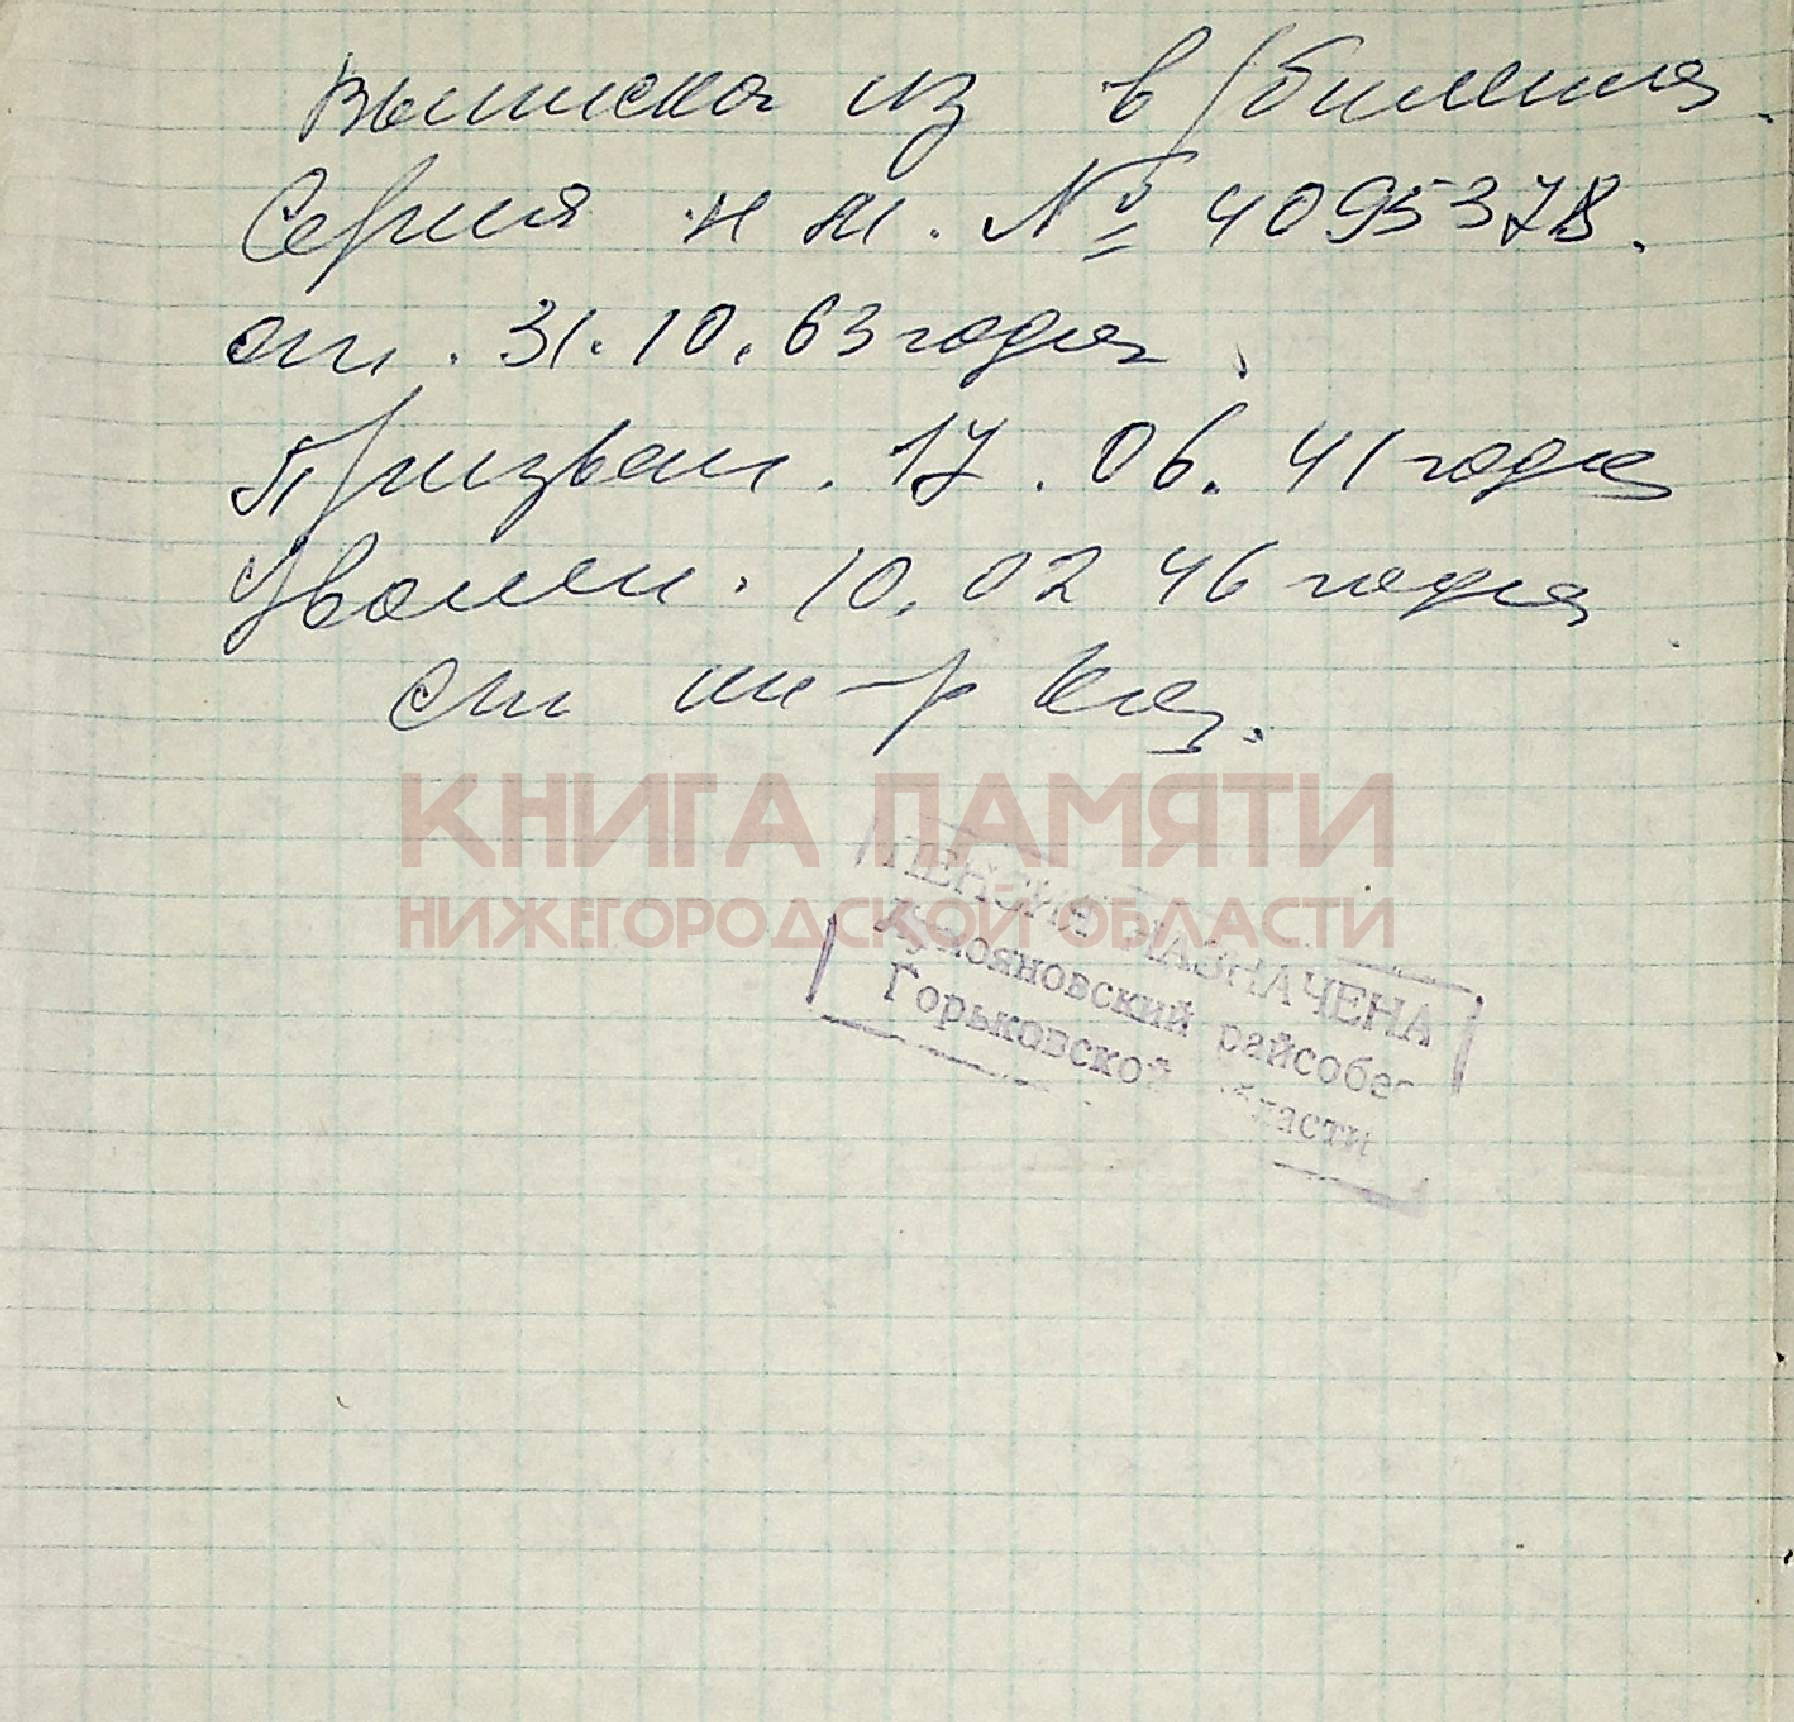 Выписка из в/билета.
Серия НМ. № 4095378.
от. 31.10.63 года.
Призван. 17.06.41 года
Уволен. 10.02 46 года
ст
КНИГА ПАМЯТИ
НИЖЕГОРОДСКОЙ ОБЛАСТИ
ПЕНСИЯ НАЗНАЧЕНА
райсобес
Горьковской области